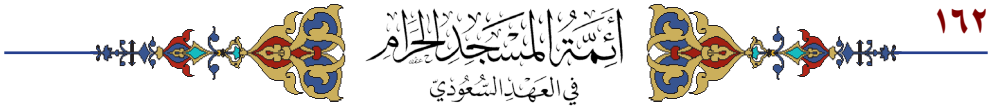 ١٦٢
أَئِمَّةُ المَسْجِدِ الحَرَامِ
فِي العَهْدِ السُّعُودِيِّ